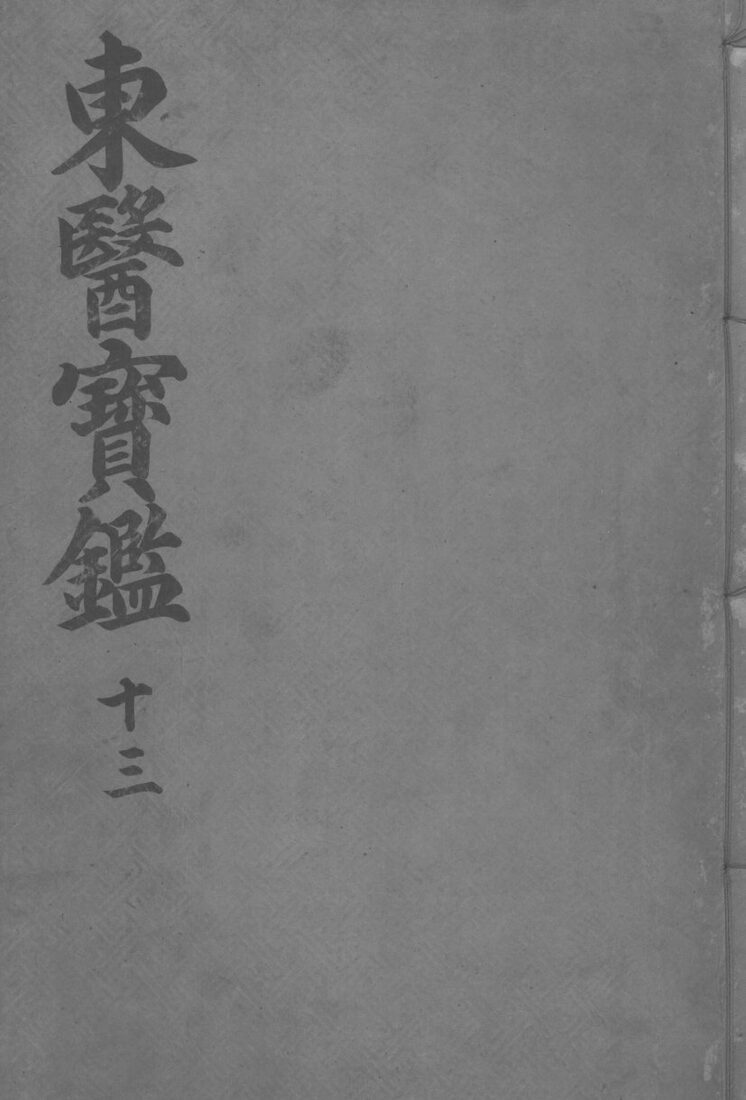 東醫寶鑑
十三